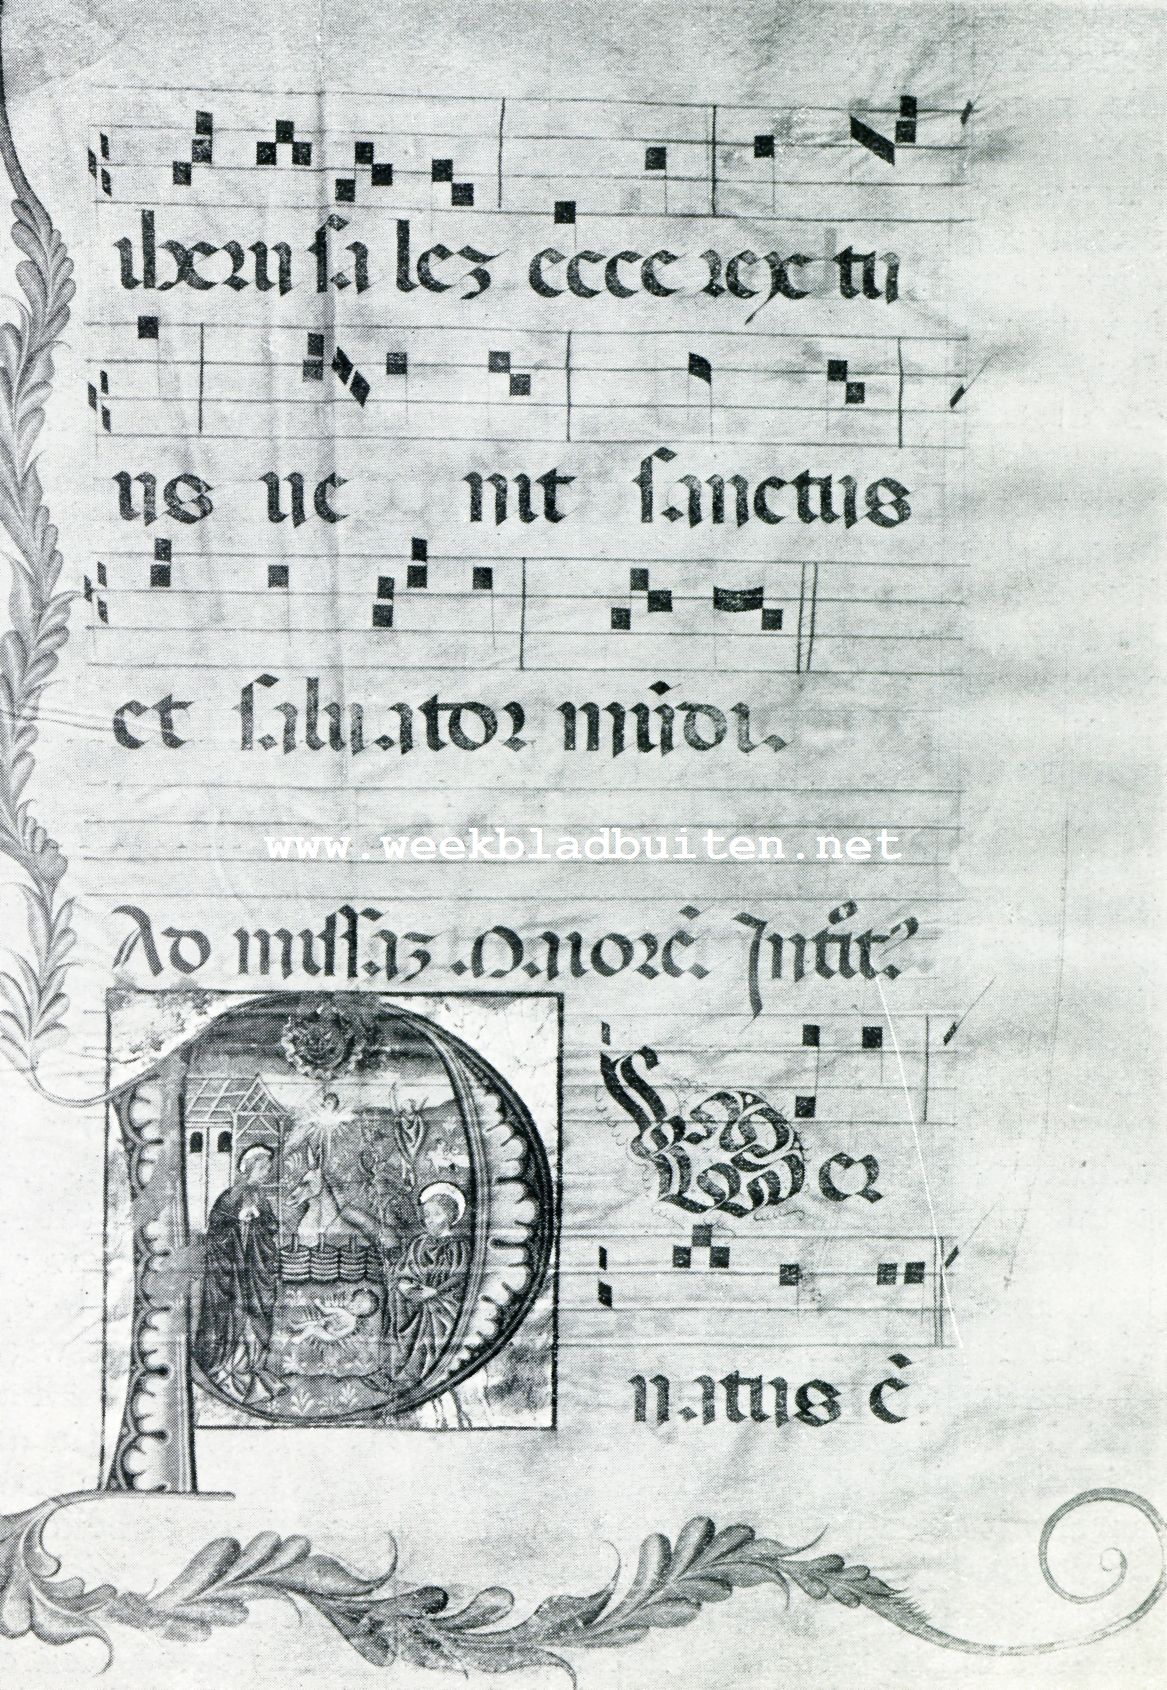 iherusalez ecce rex tu
us ue nit sanctus
et saluator mūdi.
www.weekbladbuiten.net
Ad missaz maiorē. Introit.
P uer
natus ē